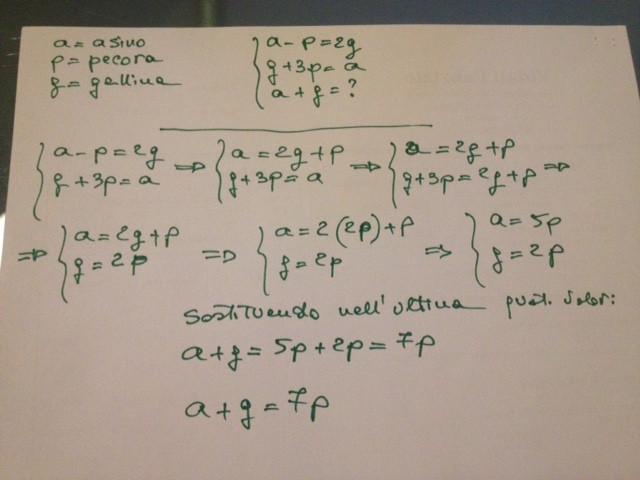 a = asino
p = pecora
g = gallina
a - p = 2g
g + 3p = a
a + g = ?
a - p = 2g ⇒ a = 2g + p ⇒ a = 2g + p
g + 3p = a g + 3p = a g + 3p = 2g + p ⇒
⇒ a = 2g + p ⇒ a = 2(2p) + p ⇒ a = 5p
g = 2p g = 2p g = 2p
Sostituendo nell'ultima valor:
a + g = 5p + 2p = 7p
a + g = 7p